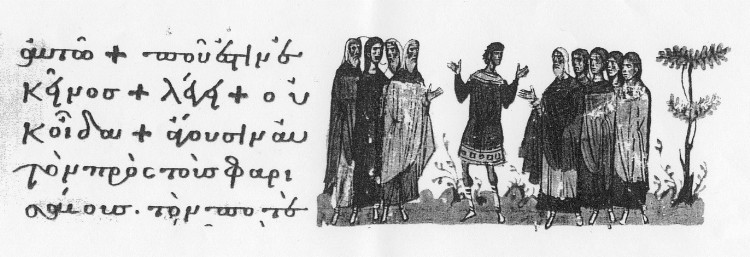 αὐτῶ + ποῦ ἐστὶν ἐ
κεῖνος + λέγει + οὐ
κοῖδα + ἄγουσιν αὐ
τὸν πρὸς τοὺς φαρι
σαίους. τὸν ποτὲ